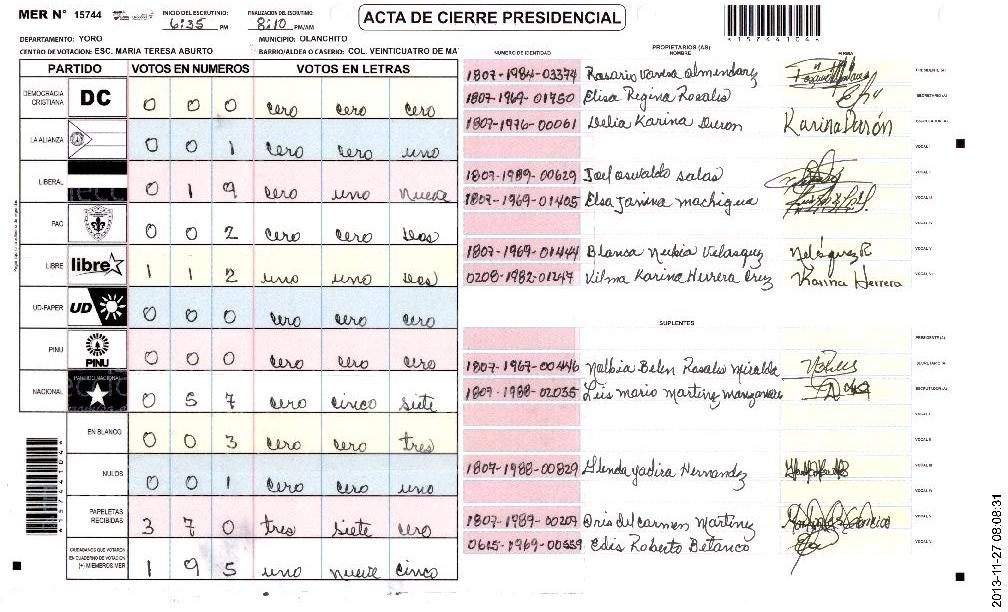 MER N° 15744
INICIO DEL ESCRUTINIO: 6:35 PM
FINALIZACION DEL ESCRUTINIO: 8:10 PM/AM
ACTA DE CIERRE PRESIDENCIAL
*157441041*
DEPARTAMENTO: YORO
MUNICIPIO: OLANCHITO
CENTRO DE VOTACION: ESC. MARIA TERESA ABURTO
BARRIO/ALDEA O CASERIO: COL. VEINTICUATRO DE MA
PARTIDO VOTOS EN NUMEROS VOTOS EN LETRAS
DEMOCRACIA CRISTIANA DC 0 0 0 cero cero cero
LA ALIANZA 0 0 1 cero cero uno
LIBERAL 0 1 9 cero uno nueve
PAC 0 0 2 cero cero dos
LIBRE libre 1 1 2 uno uno dos
UD-FAPER UD 0 0 0 cero cero cero
PINU PINU 0 0 0 cero cero cero
NACIONAL PARTIDO NACIONAL 0 5 7 cero cinco siete
EN BLANCO 0 0 3 cero cero tres
NULOS 0 0 1 cero cero uno
PAPELETAS RECIBIDAS 3 7 0 tres siete cero
CIUDADANOS QUE VOTARON EN CUADERNO DE VOTACION (+) MIEMBROS MER 1 9 5 uno nueve cinco
PROPIETARIOS (AS)
NUMERO DE IDENTIDAD NOMBRE FIRMA
1807-1984-03374 Rosario Vanesa Almendarez PRESIDENTE (A)
1807-1969-01750 Elisa Regina Rosales SECRETARIO (A)
1807-1976-00061 Delia Karina Duron Karina Durón ESCRUTADOR (A)
VOCAL I
1807-1989-00629 Joel oswaldo salas VOCAL II
1807-1969-01405 Elsa Janina machigua VOCAL III
VOCAL IV
1807-1969-01444 Blanca Nubia Velasquez Velásquez R VOCAL V
0208-1982-01247 Vilma Karina Herrera Cruz Karina Herrera VOCAL VI
SUPLENTES
PRESIDENTE (A)
1807-1967-00446 Rosales SECRETARIO (A)
1807-1988-02035 Luis mario Martinez ESCRUTADOR (A)
VOCAL I
VOCAL II
1807-1988-00829 Glenda yadira Hernandez VOCAL III
VOCAL IV
1807-1989-00207 Dris del carmen Martinez VOCAL V
0615-1969-00559 Edis Roberto Betanco VOCAL VI
2013-11-27 08:08:31